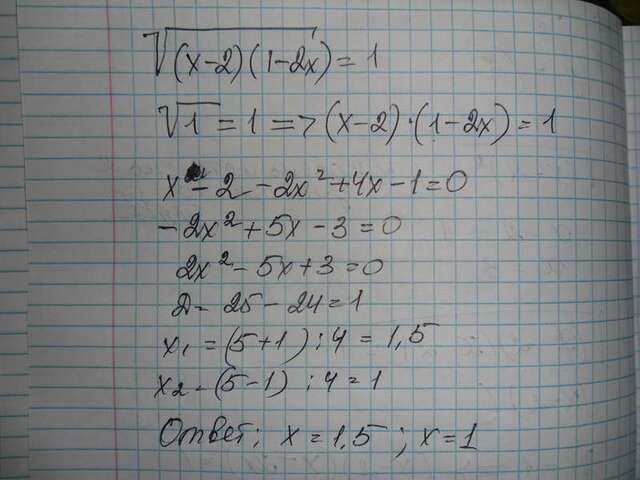 √(x-2)(1-2x) = 1
√1 = 1 => (x-2)·(1-2x) = 1
x - 2 - 2x² + 4x - 1 = 0
- 2x² + 5x - 3 = 0
2x² - 5x + 3 = 0
D = 25 - 24 = 1
x₁ = (5+1) : 4 = 1,5
x₂ = (5-1) : 4 = 1
Ответ: x = 1,5 ; x = 1